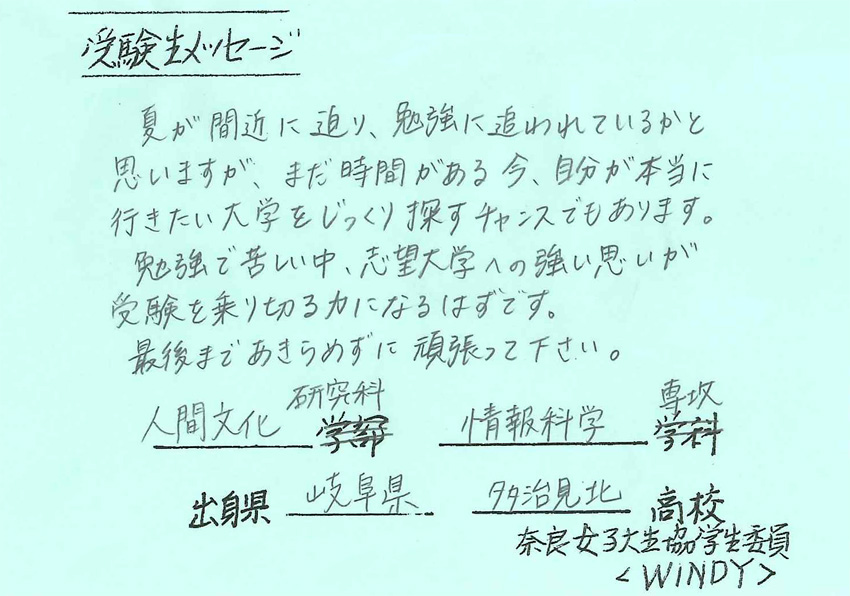 受験生メッセージ
夏が間近に迫り、勉強に追われているかと
思いますが、まだ時間がある今、自分が本当に
行きたい大学をじっくり探すチャンスでもあります。
勉強で苦しい中、志望大学への強い思いが
受験を乗り切る力になるはずです。
最後まであきらめずに頑張って下さい。
研究科 専攻
人間文化 学部 情報科学 学科
出身県 岐阜県 多治見北 高校
奈良女子大生協学生委員
<WINDY>